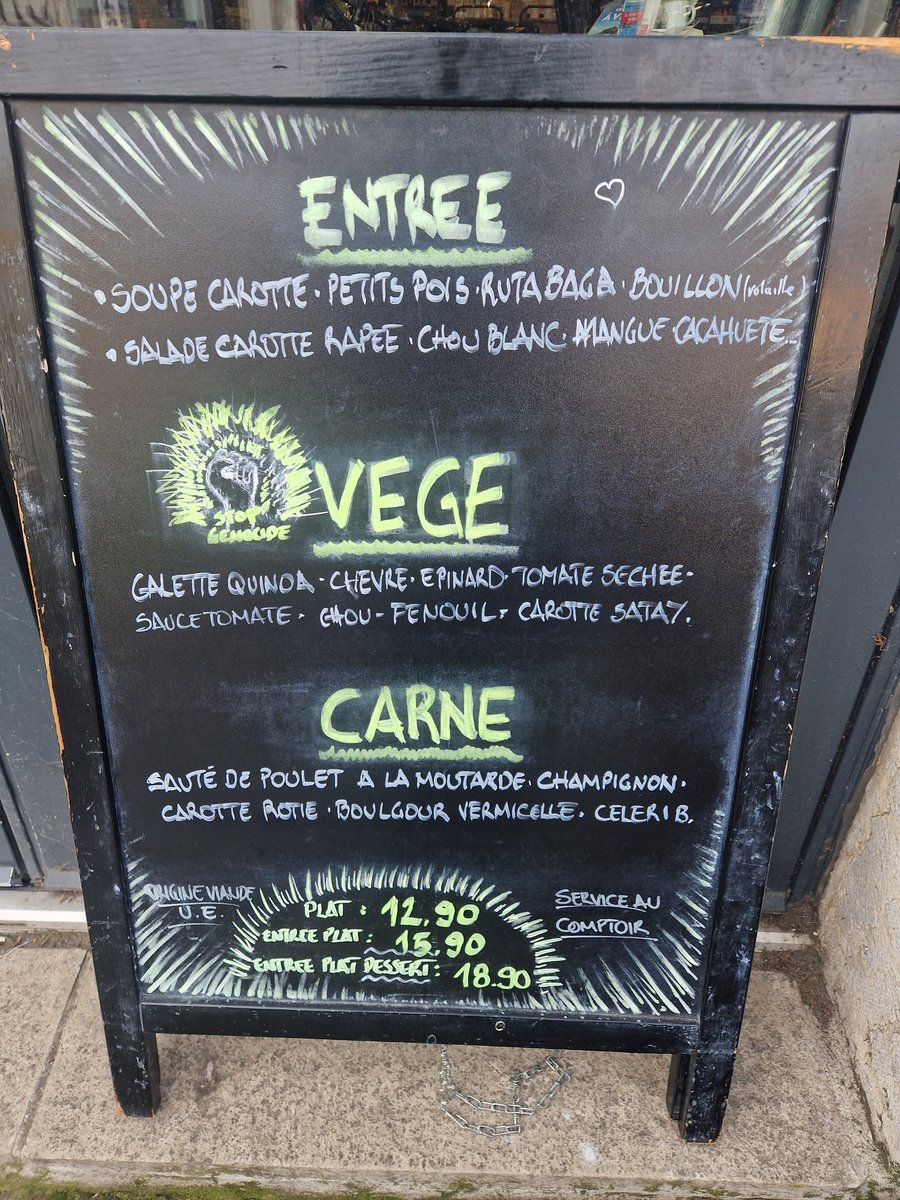 ENTREE
• SOUPE CAROTTE • PETITS POIS • RUTABAGA • BOUILLON (volaille)
• SALADE CAROTTE RAPEE • CHOU BLANC • MANGUE • CACAHUETE...
STOP
GENOCIDE
VEGE
GALETTE QUINOA • CHEVRE • EPINARD • TOMATE SECHEE •
SAUCE TOMATE • CHOU - FENOUIL • CAROTTE SATAY.
CARNE
SAUTÉ DE POULET A LA MOUTARDE • CHAMPIGNON •
CAROTTE ROTIE • BOULGOUR VERMICELLE • CELERI B.
ORIGINE VIANDE
U.E.
PLAT : 12.90
ENTREE PLAT : 15.90
ENTREE PLAT DESSERT : 18.90
SERVICE AU
COMPTOIR